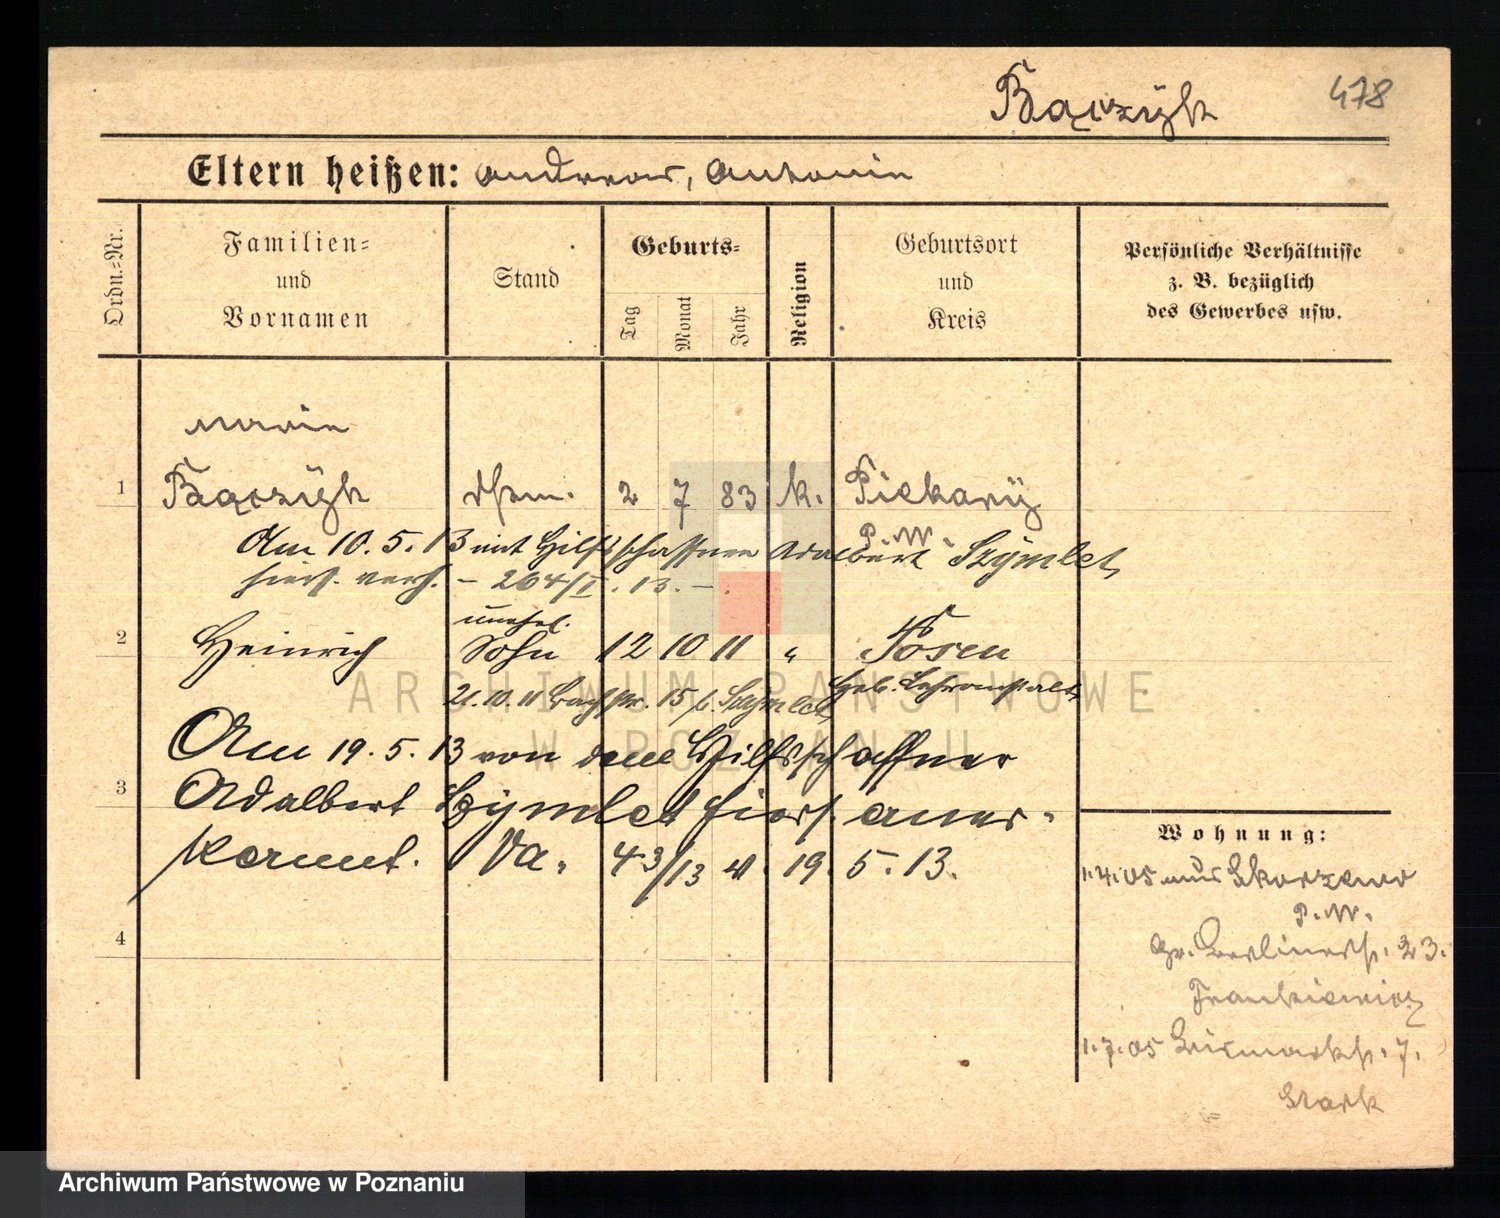 Bączyk
478
Eltern heißen: Andreas, Antonie
Ordn.=Nr.
Familien=
und
Vornamen
Stand
Geburts=
Tag
Monat
Jahr
Religion
Geburtsort
und
Kreis
Persönliche Verhältnisse
z. B. bezüglich
des Gewerbes usw.
Marie
1 Bączyk 2 7 83 k. Piekary
P. W.
Am 10. 5. 13 mit Hilfsschaffner Adalbert Szymlet
hiers. verh. – 264/I. 13. –
unehel.
2 Heinrich Sohn 12 10 11 " Posen
Heb. Lehranstalt
21. 10. 11 15 Szymlet
Am 19. 5. 13 von dem Hilfsschaffner
3 Adalbert Szymlet hiers. aner-
kannt. Va. 43/13 v. 19. 5. 13.
4
Wohnung:
1.4.05 aus Skorzewo
P. W.
Gr. Berlinerstr. 23.
Frankiewicz
1.7.05 Bismarkstr. 7.
Stark
ARCHIWUM PAŃSTWOWE
W POZNANIU
Archiwum Państwowe w Poznaniu